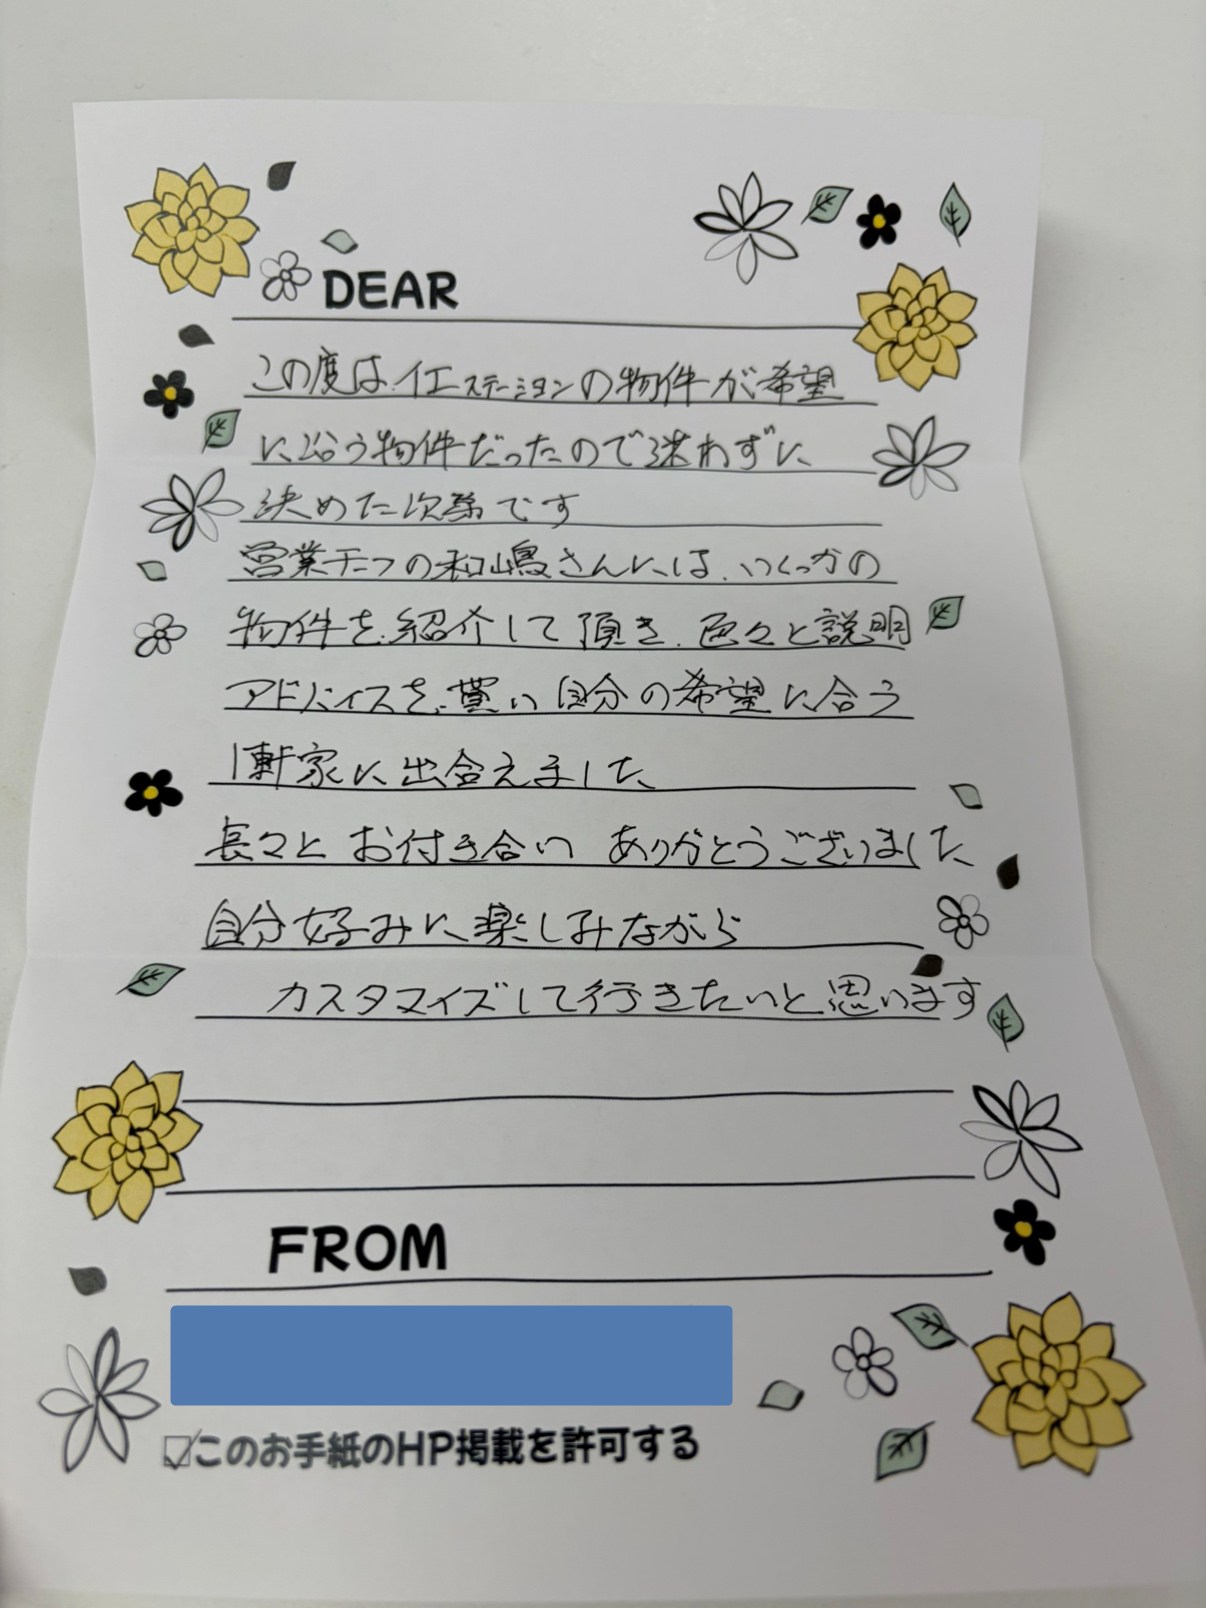 DEAR
この度は、イエステーションの物件が希望
に沿う物件だったので迷わずに
決めた次第です
営業スタッフの和嶋さんには、いくつかの
物件を、紹介して頂き、色々と説明
アドバイスを、貰い自分の希望に合う
1軒家に出合えました
長々とお付き合い ありがとうございました
自分好みに楽しみながら
カスタマイズして行きたいと思います
FROM
☑このお手紙のHP掲載を許可する